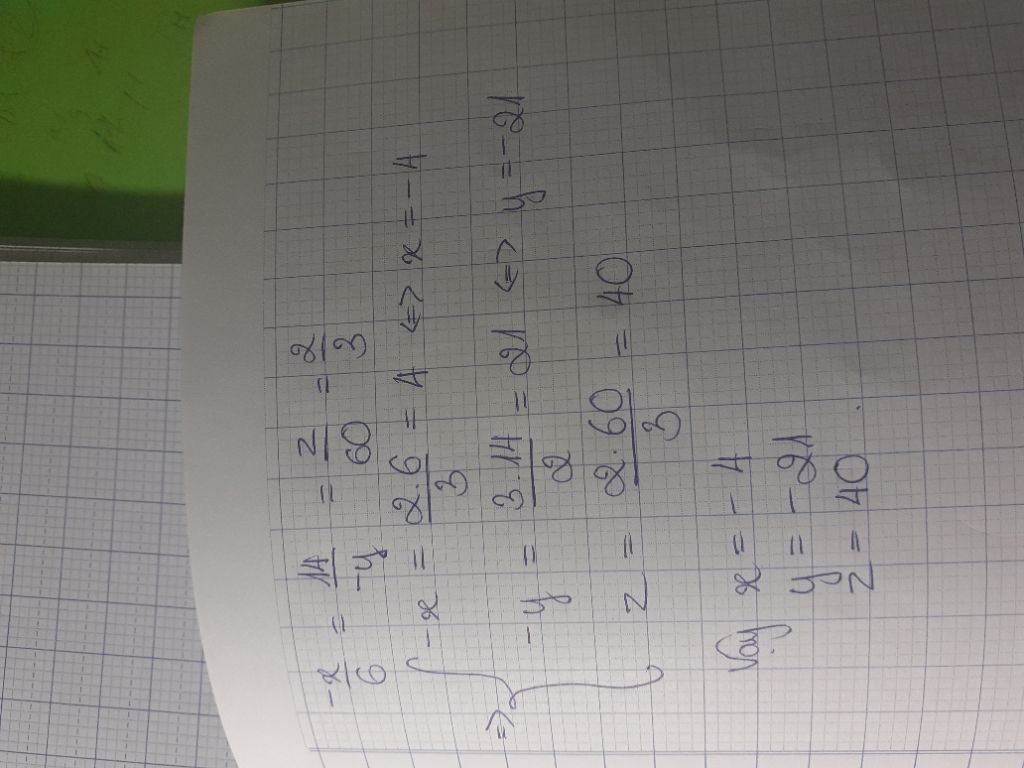 -x/6 = 14/-y = z/60 = 2/3
=> { -x = 2.6/3 = 4 <=> x = -4
-y = 3.14/2 = 21 <=> y = -21
z = 2.60/3 = 40
Vậy x = -4
y = -21
z = 40.